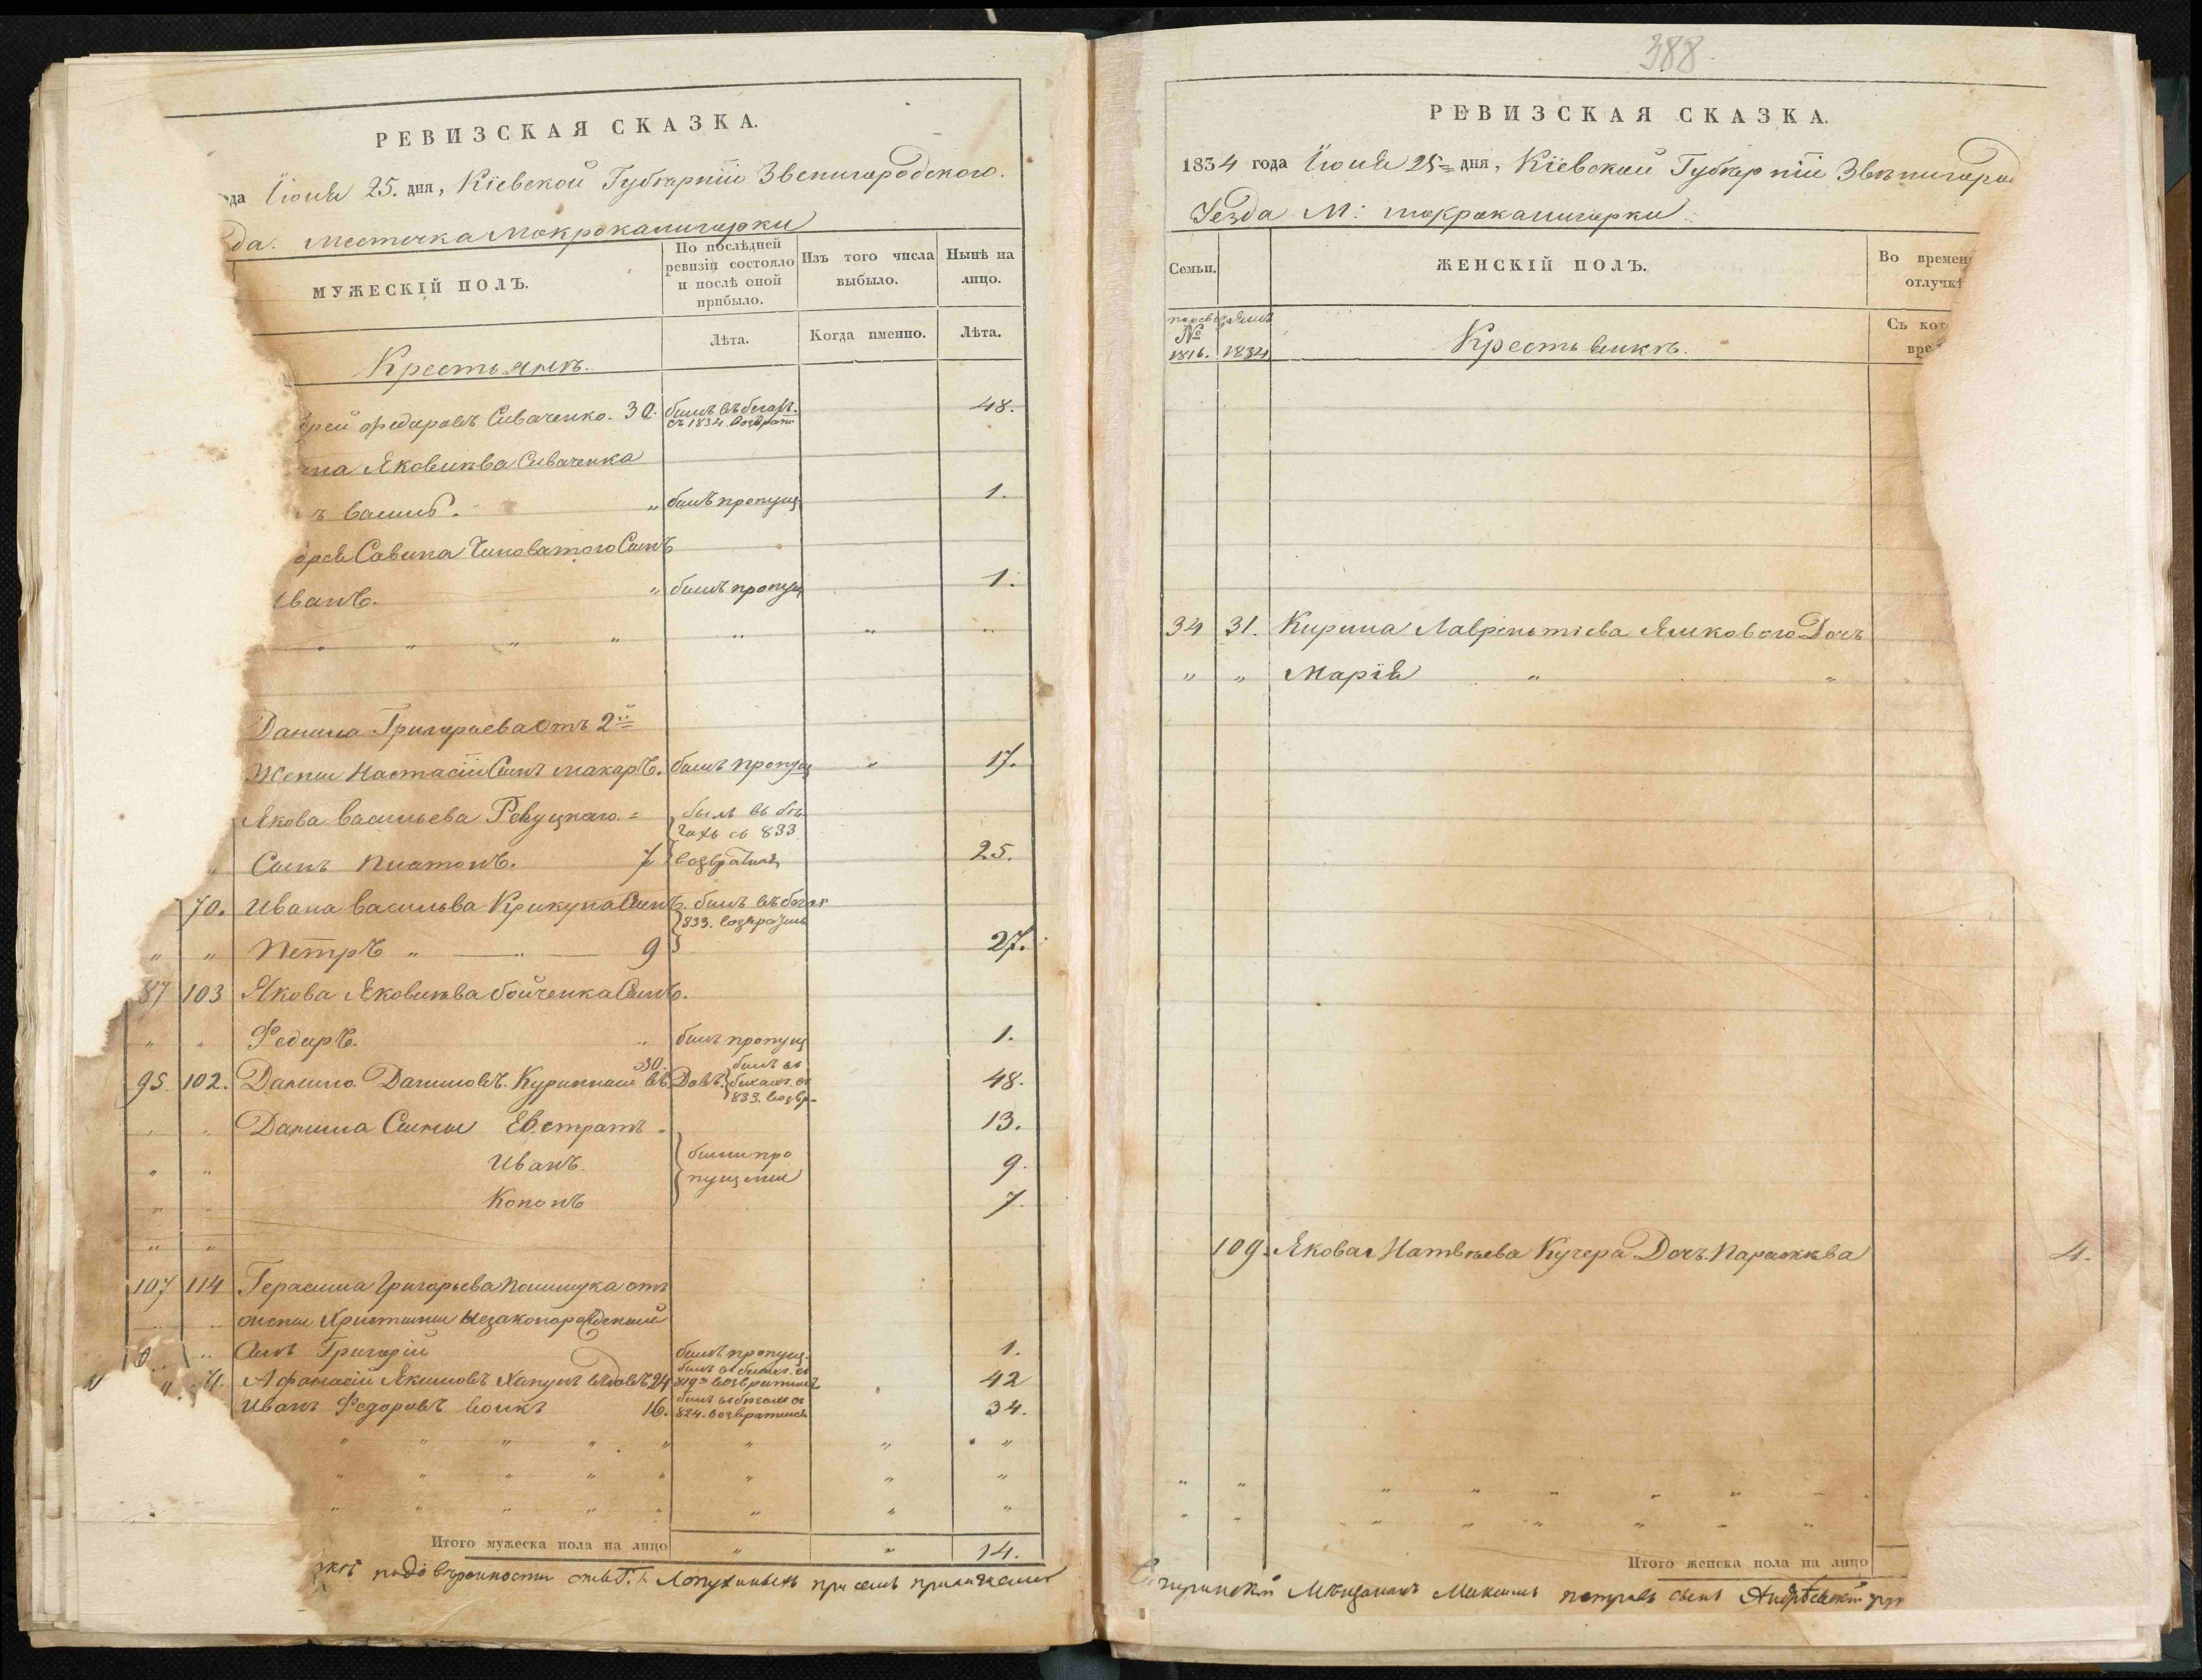 РЕВИЗСКАЯ СКАЗКА.
да Июня 25. дня, Кіевской Губерніи Звенигородского.
да. Местечка Мокрокалигорки
МУЖЕСКІЙ ПОЛЪ.
По послѣдней ревизіи состояло и послѣ оной прибыло.
Изъ того числа выбыло.
Нынѣ на лицо.
Лѣта.
Когда именно.
Лѣта.
Крестьянъ.
рей Федоровъ Сиваченко. 30. былъ въ бегах. съ 1834. возврати 48.
Яковлѣва Сиваченка
ъ Василь. " былъ пропущ 1.
Савина Чиноватого Сынъ
Иванъ. " былъ пропущ 1.
Данила Григорьева отъ 2й
Жены Настасіи Сынъ Макаръ. былъ пропущ " 17.
Якова Васильева Ревуцкаго. = былъ въ бѣ
гахъ съ 833
" Сынъ Платонъ. 7 возвратилъ 25.
70. Ивана Васильва Крикуна Сынъ. былъ въ бегах
833. возвратилъ
" " Петръ " — " — 9 27.
87 103 Якова Яковлѣва Бойченка Сынъ.
" " Федоръ. " былъ пропущ 1.
95. 102. Данило Даниловъ. 30. былъ въ бѣхахъ. съ 833. возвр 48.
" " Данила Сыны Евстратъ " 13.
" " Иванъ. были про 9.
" " Кононъ пущены 7.
" "
107 114 Герасима Григорьева отъ
" " жены Христины незаконорожденный
" Сынъ Григорій былъ пропущ. 1.
Афанасій Якимовъ Хапунъ 24 былъ въ бегахъ. съ 819го возвратилъ 42
Иванъ Федоровъ 16. былъ въ бѣгахъ съ 824. возвратилсь 34.
Итого мужеска пола на лицо " " 14.
по довѣренности отъ Г. Г. Лопухиныхъ при семъ прилагаемой
388
РЕВИЗСКАЯ СКАЗКА.
1834 года Июня 25= дня, Кіевской Губерніи Звѣнигород
Уезда М: мокрокалигорки
Семьи.
ЖЕНСКІЙ ПОЛЪ.
Во времен отлучкѣ
№ 1816. 1834
Крестьянкъ.
Съ ког вре
34 31. Кирила Лаврентіева Дочъ
" " Марія " "
109. Якова Матвѣева Кучера Дочъ. Парасквва 4.
Итого женска пола на лицо
Мѣщанинъ Максимъ петровъ сынъ